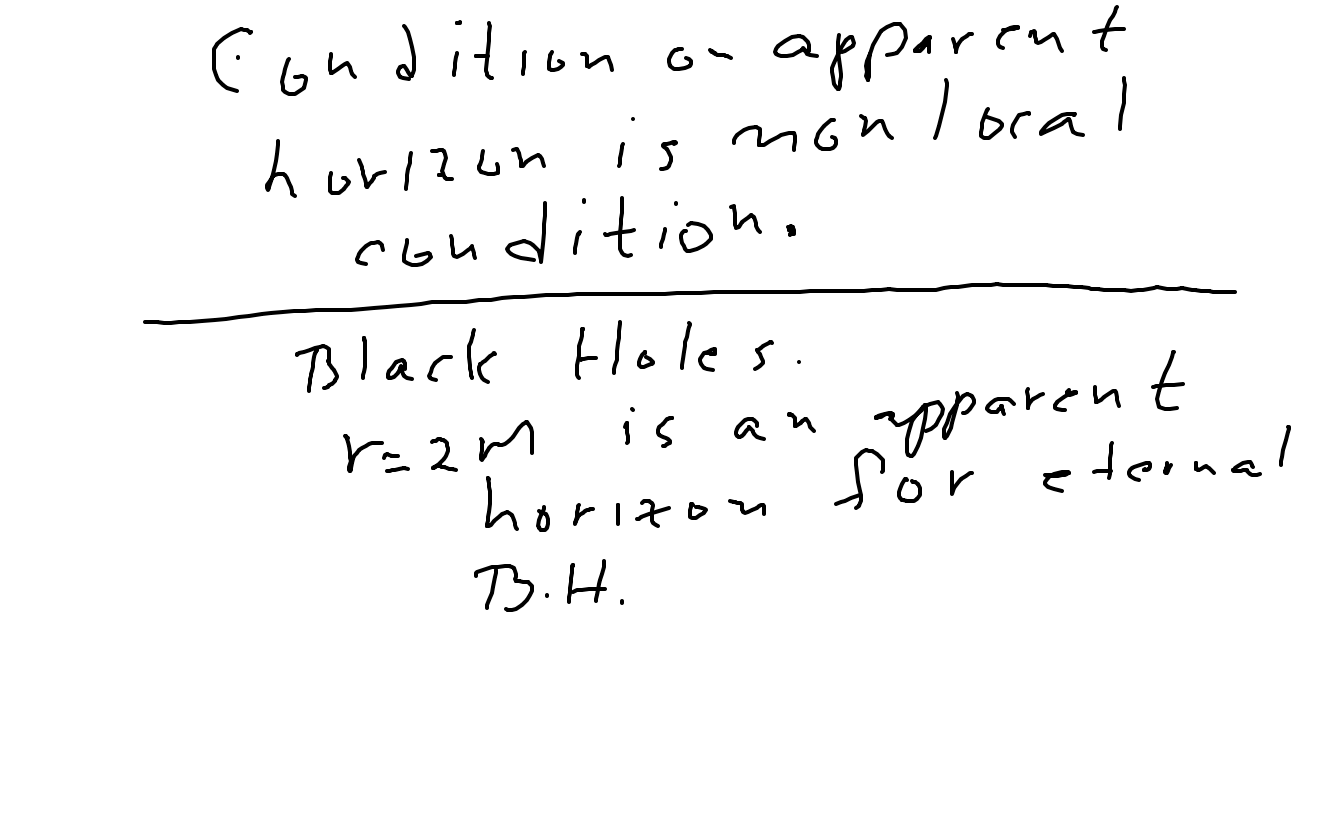 Condition on apparent
horizon is nonlocal
condition.
Black Holes.
r=2M is an apparent
horizon for eternal
B.H.